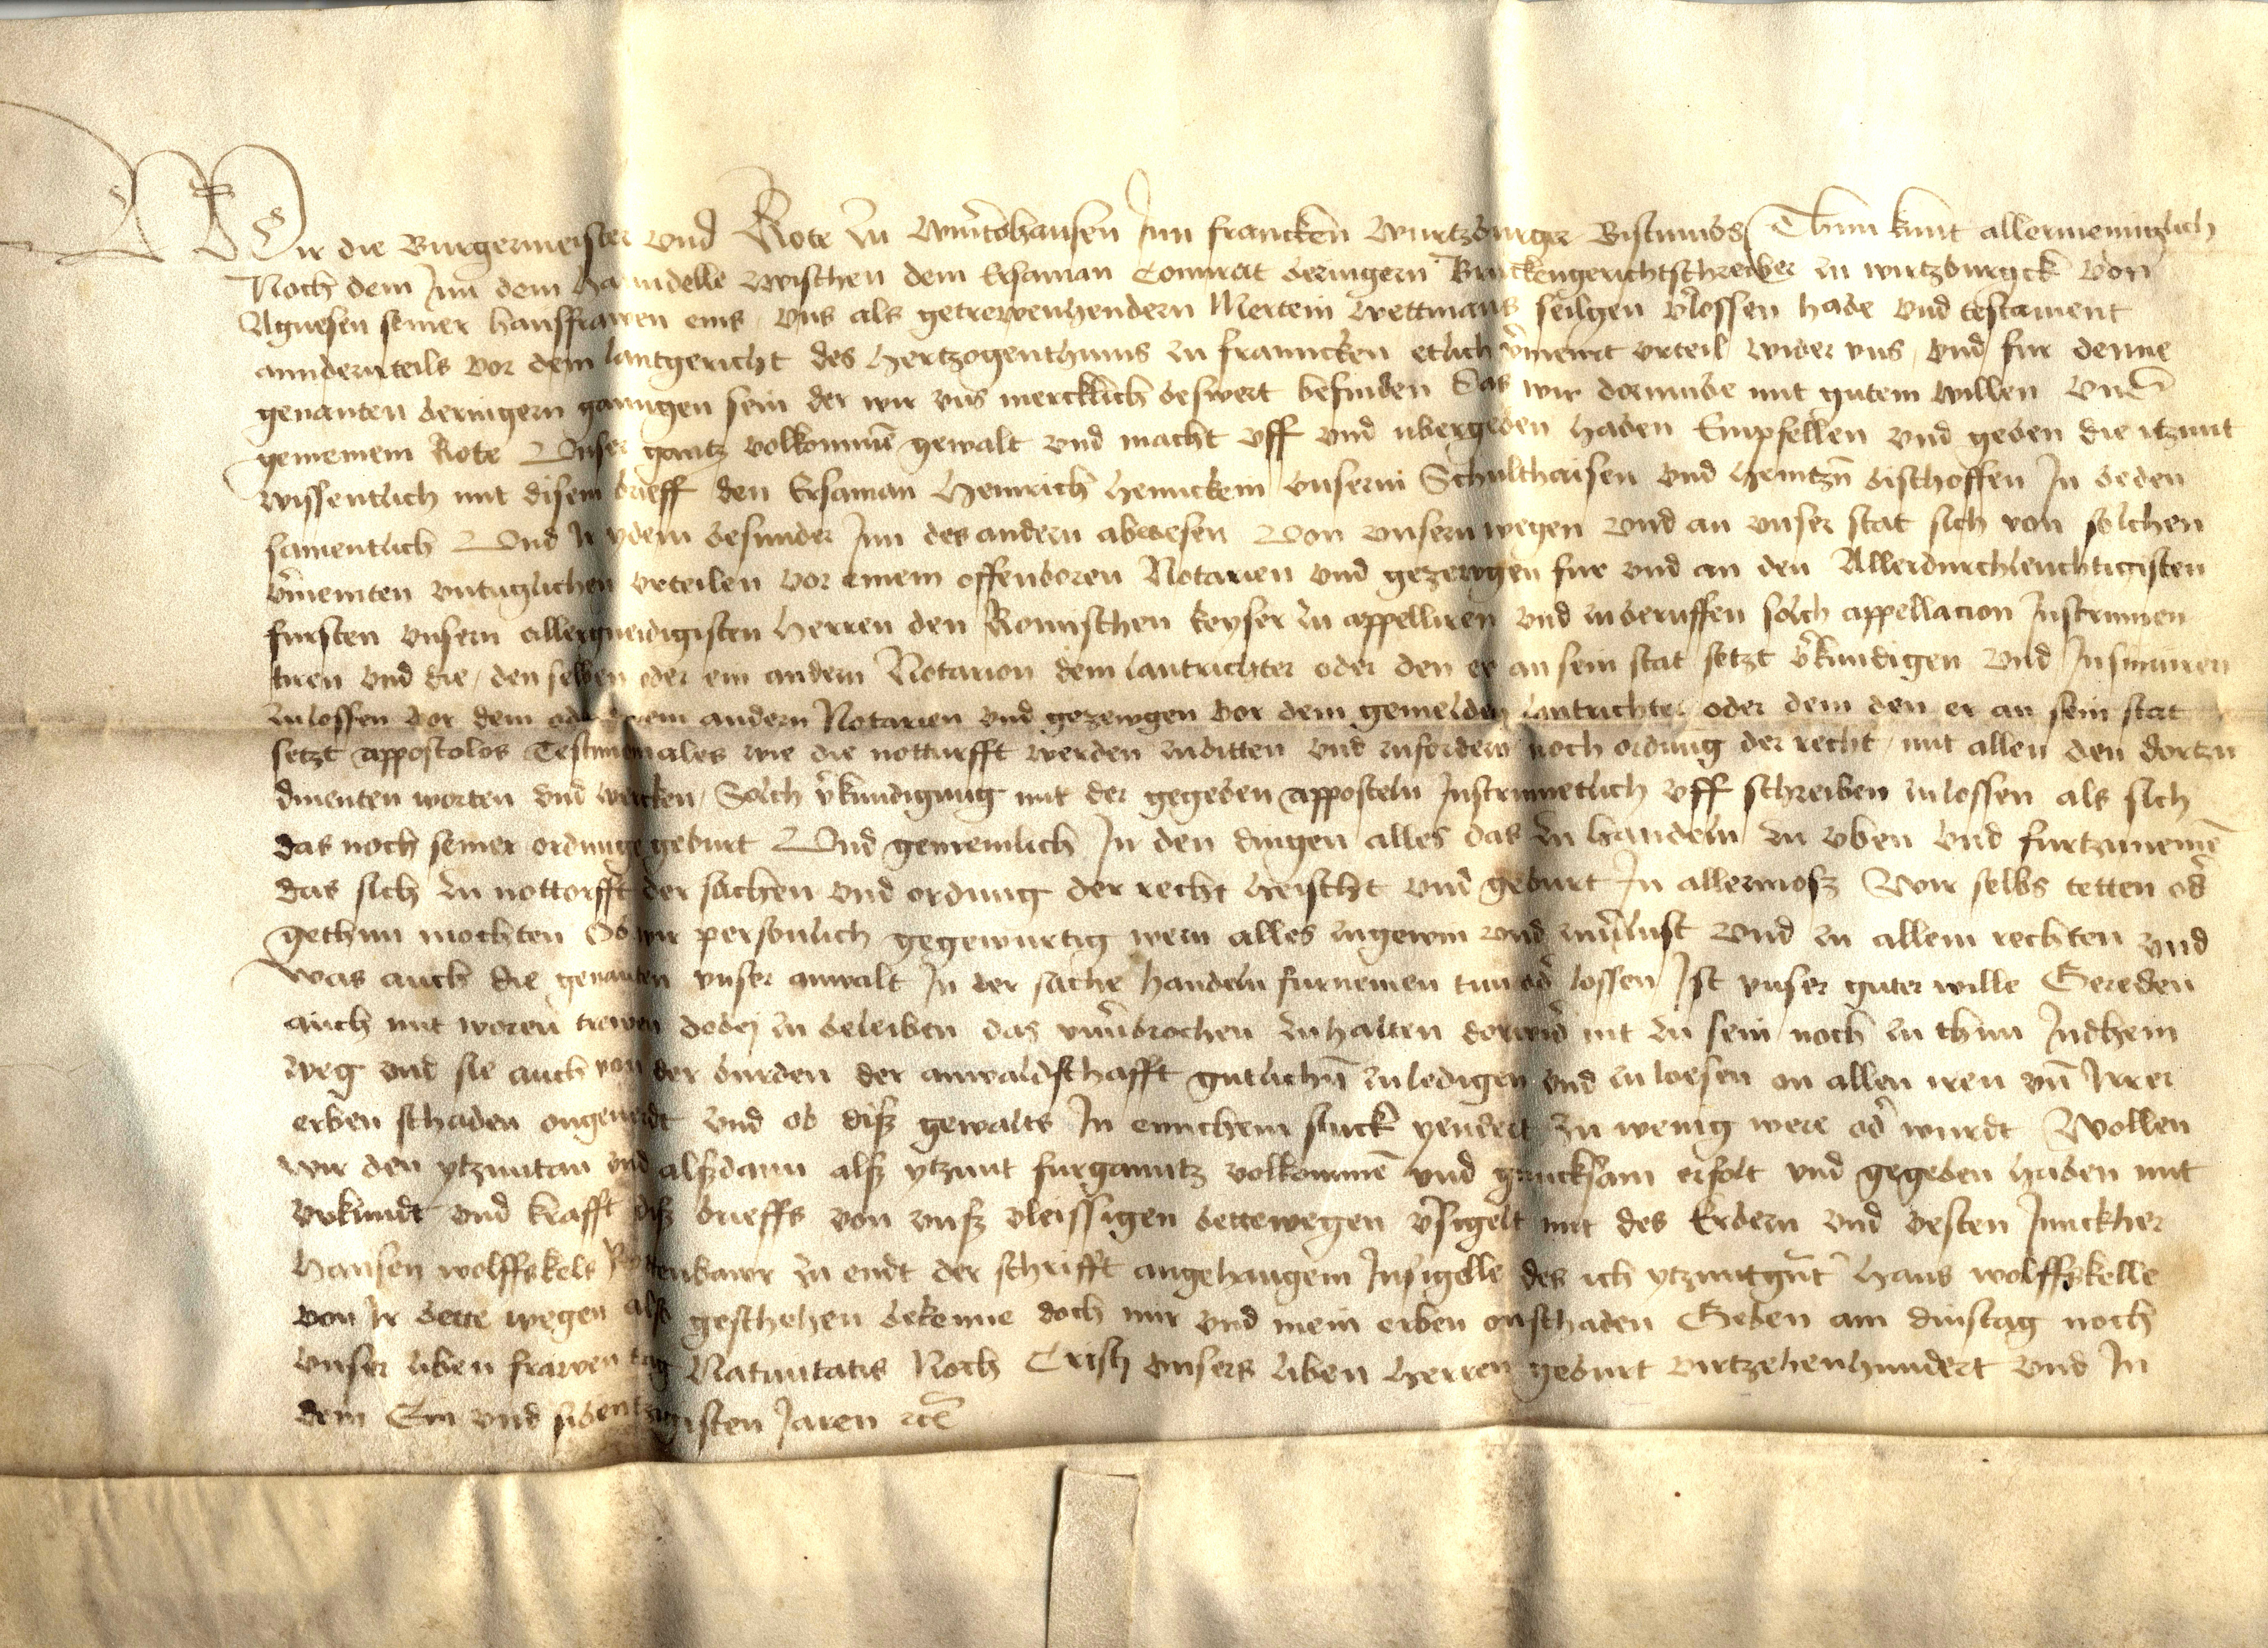 Wir die Burgermeister und Rote zu Wint̃ohausen Jnn francken Wurtzburger Bistumbs Thun kunt allermeniglich
Noch dem Jnn dem handelle zwischen dem Ersaman Connrat beringern Bruckengerichtschreiber zu wirtzburgck von
Agnesen seiner hausfrawen eins vns als getrewenhendern Mertein Wettmans seligen v̾lossen habe vnd testament
anndernteils vor dem lantgericht des hertzogenthums zu franncken etlich v̾meint vrteil wider vns vnd fur denne
genanten beringern ganngen sein der wir vns mercklich beswert befinden Das wir dorumbe mit gutem willen vnd
gemeinem Rote Vnser gantz volkommē gewalt vnd macht vff vnd vbergeben haben Empfellen vnd geben die itzunt
wissentlich mit disem brieff den Ersaman Heinrich Henncklein vnserm Schulthaisen vnd heintzn̄ bischoffen Jn beden
samentlich Vnd Jr ydem besunder Jnn des andern abwesen Von vnsern wegen vnd an vnser stat sich von solchen
v̾meinten vntuglichen vrteilen vor einem offenboren Notarien vnd gezewgen fur vnd an den Allerdurchleuchtigisten
fursten vnsern allergneidigisten Herren den Romischen keyser zu appelliren vnd zuberuffen solch appellacion Jnstrumen
tiren vnd die den selben oder ein andern Notarion dem lantrichter oder den er an sein stat setzt v̾kundigen vnd Jnsinuiren
zulossen vor dem oder einem andern Notarien vnd gezewgen vor dem gemelden lantrichter oder dem den er an sein stat
setzt appostolos Testimoniales wie die notturfft werden zubitten vnd zufordern noch ordnung der recht mit allen den dortzu
dinenten worten vnd wercken Solch v̾kundigung mit der gegeben apposteln Jnstrumetlich vff schreiben zulossen als sich
das noch seiner ordnunge geburt Vnd gemeinlich Jn den dingen alles das zu handeln zu vben vnd furtzunemē
das sich zu nottorfft der sachen vnd ordnung der recht heischt vnd geburt Jn allermosz Wir selbs tetten od̾
gethun mochten Ob wir personlich gegewurtig wern alles zugewin vnd zuv̾lust vnd zu allem rechten vnd
was auch die genanten vnser anwalt Jn der sache handeln furnemen tun od̾ lossen Jst vnser guter wille Gereden
auch mit woren trewen dobej zu beleiben das vnv̾brochen zu halten dorwid̾ nit zu sein noch zu thun Jndhein
weg vnd sie auch von der burden der anwaldschafft gutlichn̄ zuledigen vnd zu loesen on allen iren vn̄ Jrer
erben schaden ongeuerdt vnd ob disz gewalts Jn einichem stuck yendert zu wenig were od̾ wurdt Wollen
wir den ytzuntan vnd alszdann alsz ytzunt furganntz volkommē vnd gnucksam erfolt vnd gegeben haben mit
vrkundt vnd krafft disz brieffs von vnsz vleissigen bettewegen v̾sigelt mit des Erbern vnd vesten Junckher
Hansen wolffskels Rottenbawr zu endt der schrifft angehangem Jnsigelle des ich ytzuntgn̄t Hans wolffzkelle
von Jr bette wegen alsz geschehen bekenne doch mir vnd mein erben onschaden Geben am dinstag noch
vnser liben frawen tag Natiuitatis Noch Cristj vnsers liben herren geburt virtzehenhundert vnd Jn
dem Ein vnd sibentzigisten Jaren ꝛc̄